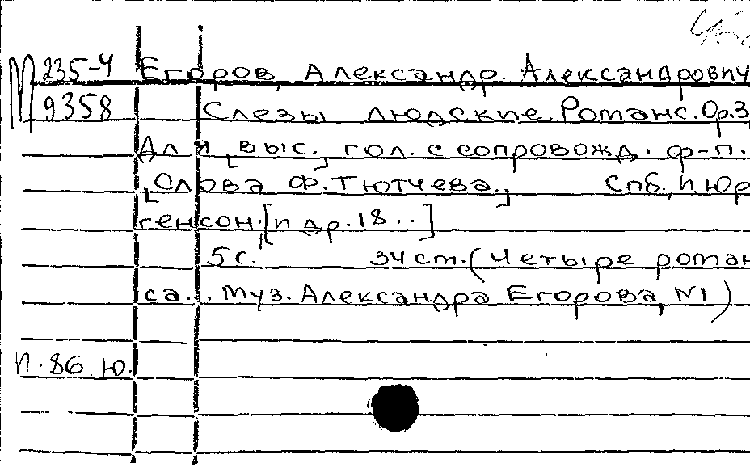 М 235-4 Егоров, Александр Александрович
9358 Слезы людские. Романс. Ор.3,
Для [выс.] гол. с сопровожд. ф-п.
[Слова Ф. Тютчева.] Спб, П. Юр
генсон. [п др. 18..]
5 с. 34 ст. (Четыре роман
са... Муз. Александра Егорова, №1)
п. 86 ю.